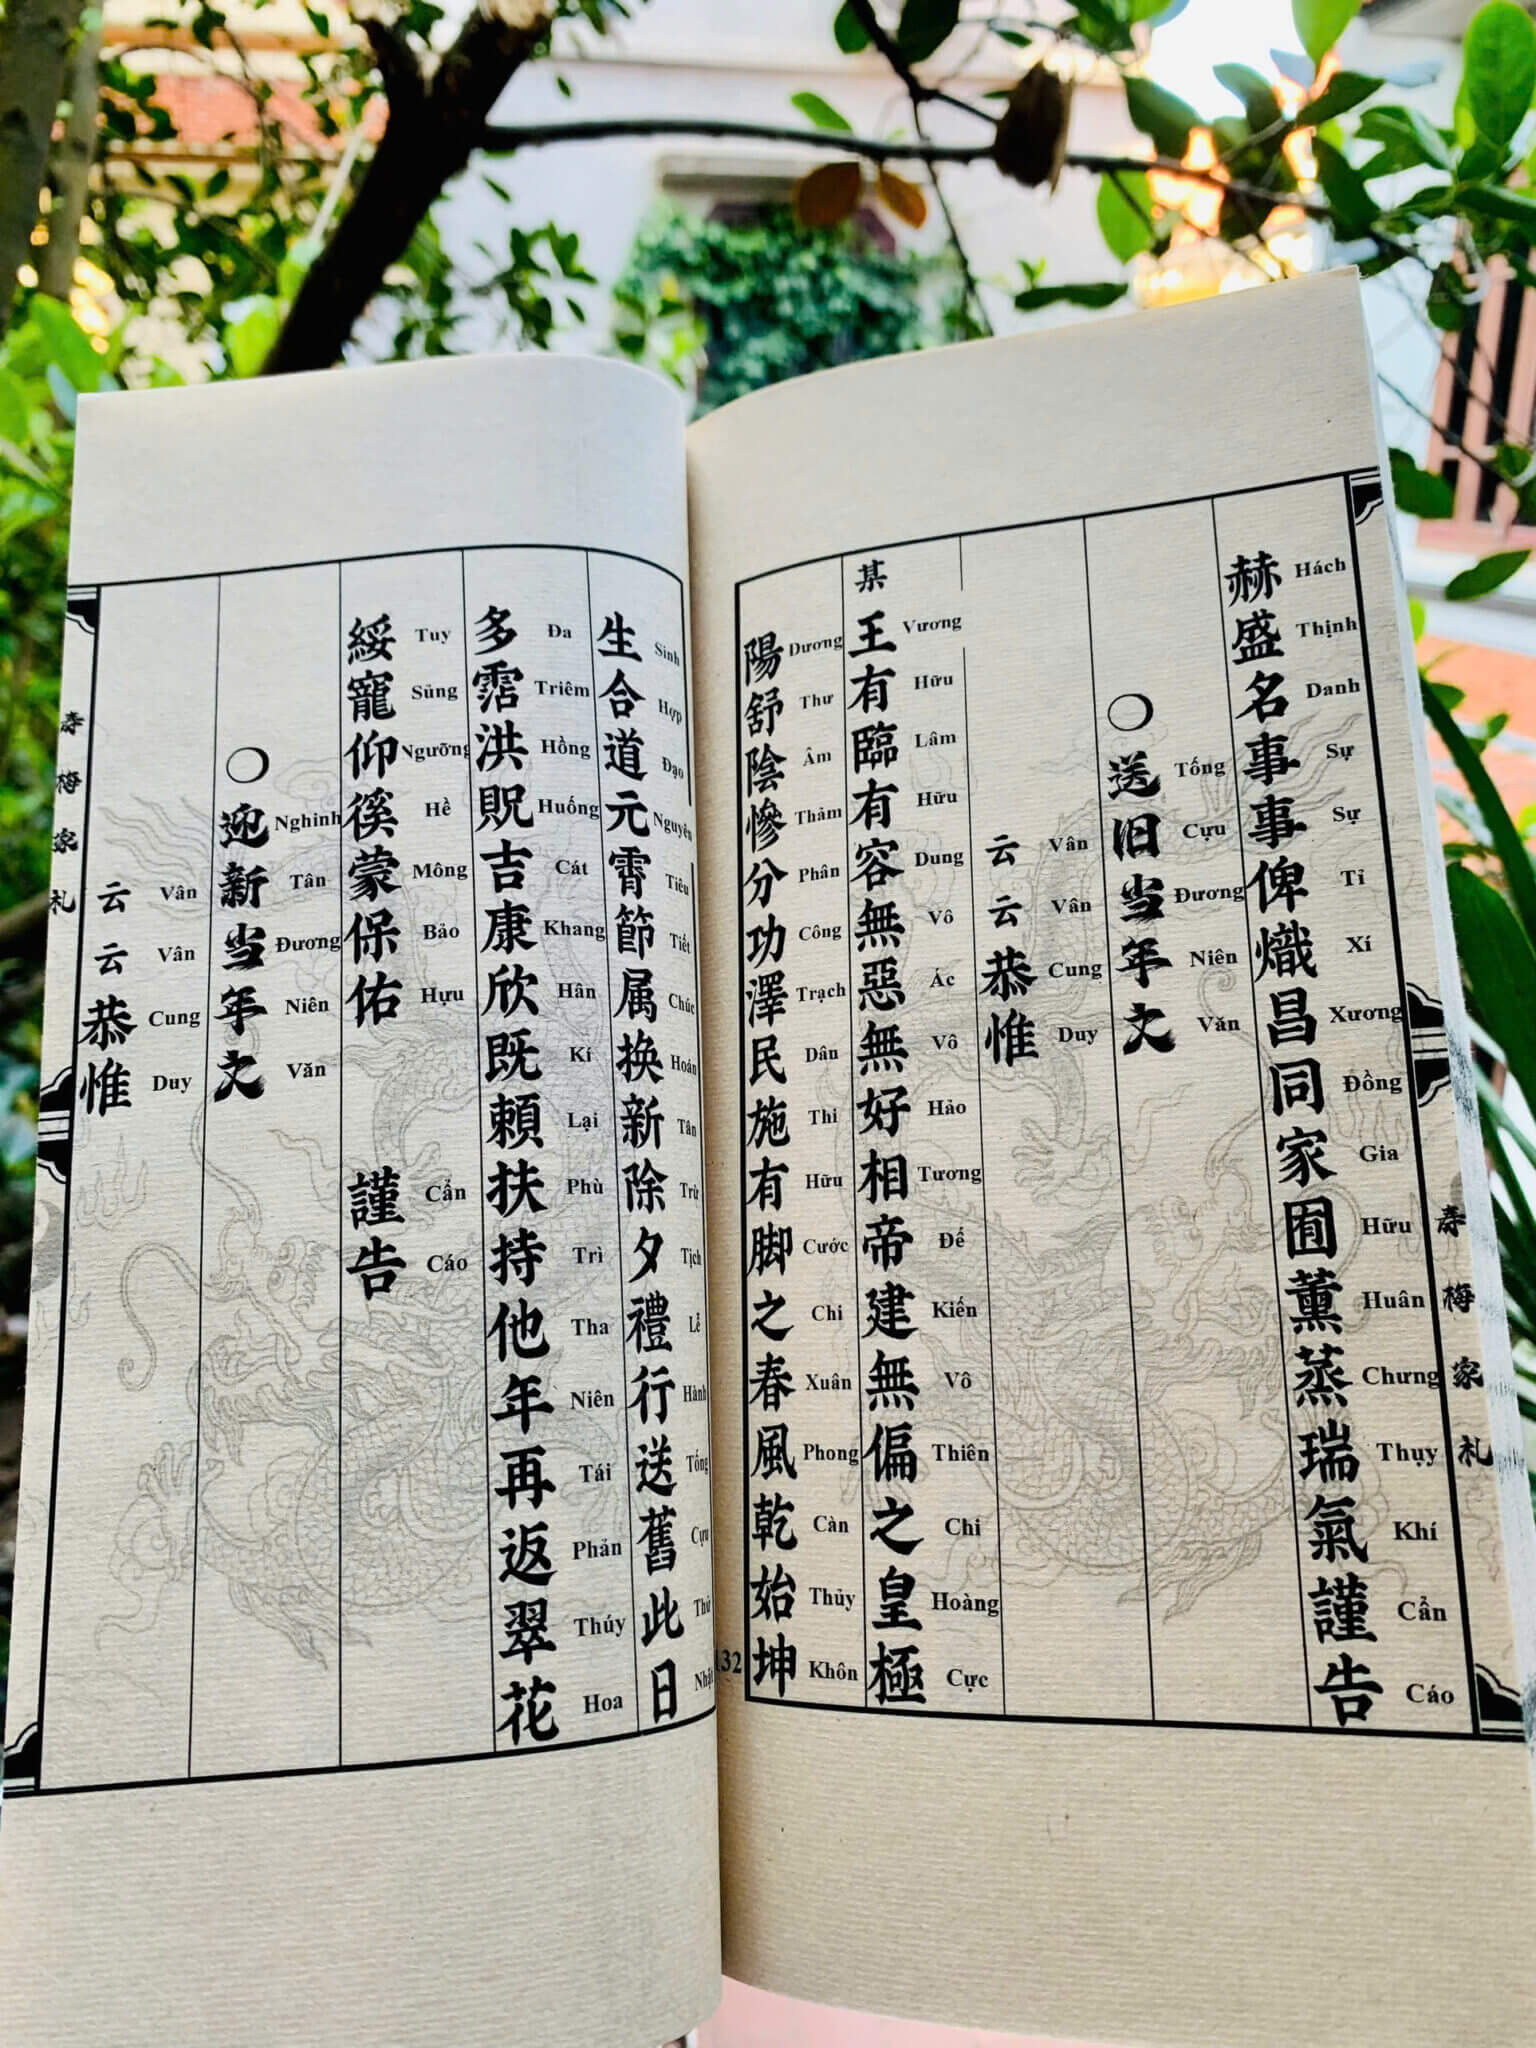 赫盛名事事俾熾昌同家囿薰蒸瑞氣謹告
Hách Thịnh Danh Sự Sự Tỉ Xí Xương Đồng Gia Hữu Huân Chưng Thụy Khí Cẩn Cáo
〇送旧当年文
Tống Cựu Đương Niên Văn
云云恭惟
Vân Vân Cung Duy
某王有臨有容無惡無好相帝建無偏之皇極
Vương Hữu Lâm Hữu Dung Vô Ác Vô Hảo Tương Đế Kiến Vô Thiên Chi Hoàng Cực
陽舒陰慘分功澤民施有脚之春風乾始坤
Dương Thư Âm Thảm Phân Công Trạch Dân Thi Hữu Cước Chi Xuân Phong Càn Thủy Khôn
132
壽梅家札
生合道元霄節属换新除夕禮行送舊此日
Sinh Hợp Đạo Nguyên Tiêu Tiết Chúc Hoán Tân Trừ Tịch Lễ Hành Tống Cựu Thử Nhật
多霑洪貺吉康欣既賴扶持他年再返翠花
Đa Triêm Hồng Huống Cát Khang Hân Kí Lại Phù Trì Tha Niên Tái Phản Thúy Hoa
綏寵仰徯蒙保佑 謹告
Tuy Sủng Ngưỡng Hề Mông Bảo Hựu Cẩn Cáo
〇迎新当年文
Nghinh Tân Đương Niên Văn
云云恭惟
Vân Vân Cung Duy
壽梅家札